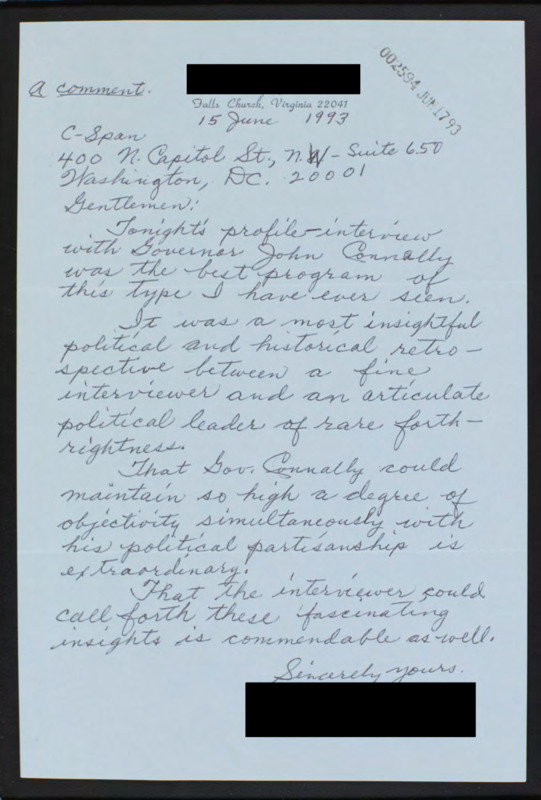 A comment.
002594 JUN1793
Falls Church, Virginia 22041
15 June 1993
C-Span
400 N. Capitol St., N.W - Suite 650
Washington, DC. 20001
Gentlemen:
Tonight's profile-interview
with Governor John Connally
was the best program of
this type I have ever seen.
It was a most insightful
political and historical retro-
spective between a fine
interviewer and an articulate
political leader of rare forth-
rightness.
That Gov. Connally could
maintain so high a degree of
objectivity simultaneously with
his political partisanship is
extraordinary.
That the interviewer could
call forth these fascinating
insights is commendable as well.
Sincerely yours.